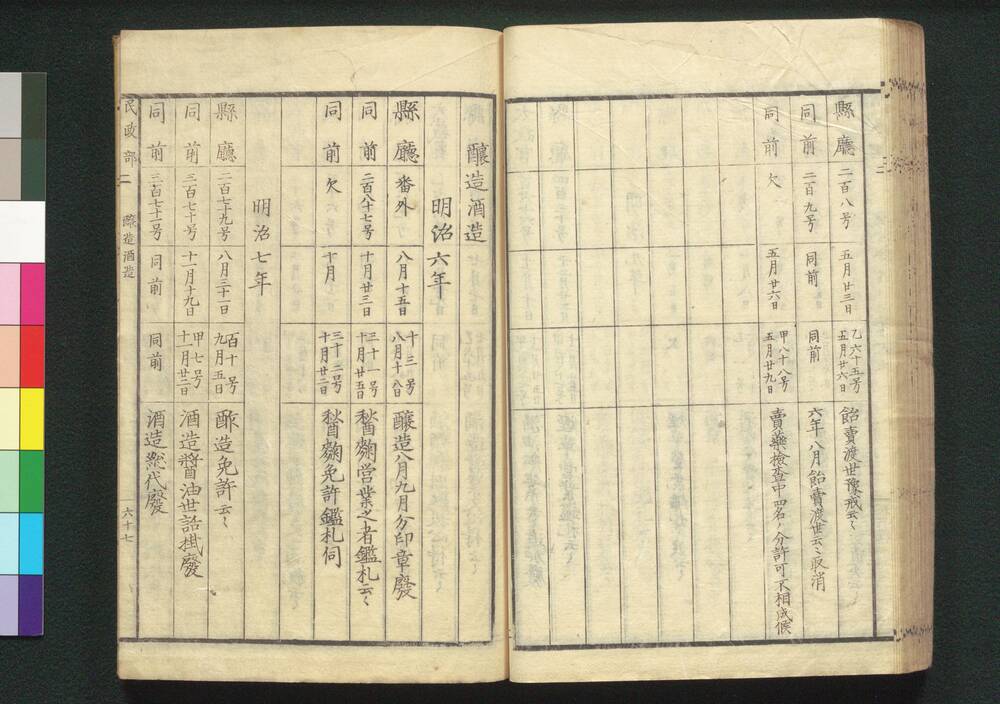 縣廳 二百八号 五月廿三日 乙六十五号 五月廿六日 飴賣渡世豫戒云々
同前 二百九号 同前 同前 六年八月飴賣渡世云々取消
同前 欠 五月廿六日 甲八十八号 五月廿九日 賣藥檢査中四名ノ分許可不相成候
釀造酒造
明治六年
縣廳 番外 八月十五日 十三号 八月十八日 釀造八月九月分印章廢
同前 二百八十七号 十月廿三日 二十一号 十月廿五日 麹営業之者鑑札云々
同前 欠 十月 三十二号 十月廿二日 麹免許鑑札伺
明治七年
縣廳 二百七十九号 八月三十一日 百十号 九月五日 酢造免許云々
同前 三百七十号 十一月十九日 甲七号 十一月廿二日 酒造醬油世話掛廢
同前 三百七十一号 同前 同前 酒造總代廢
民政部二 釀造酒造 六十七